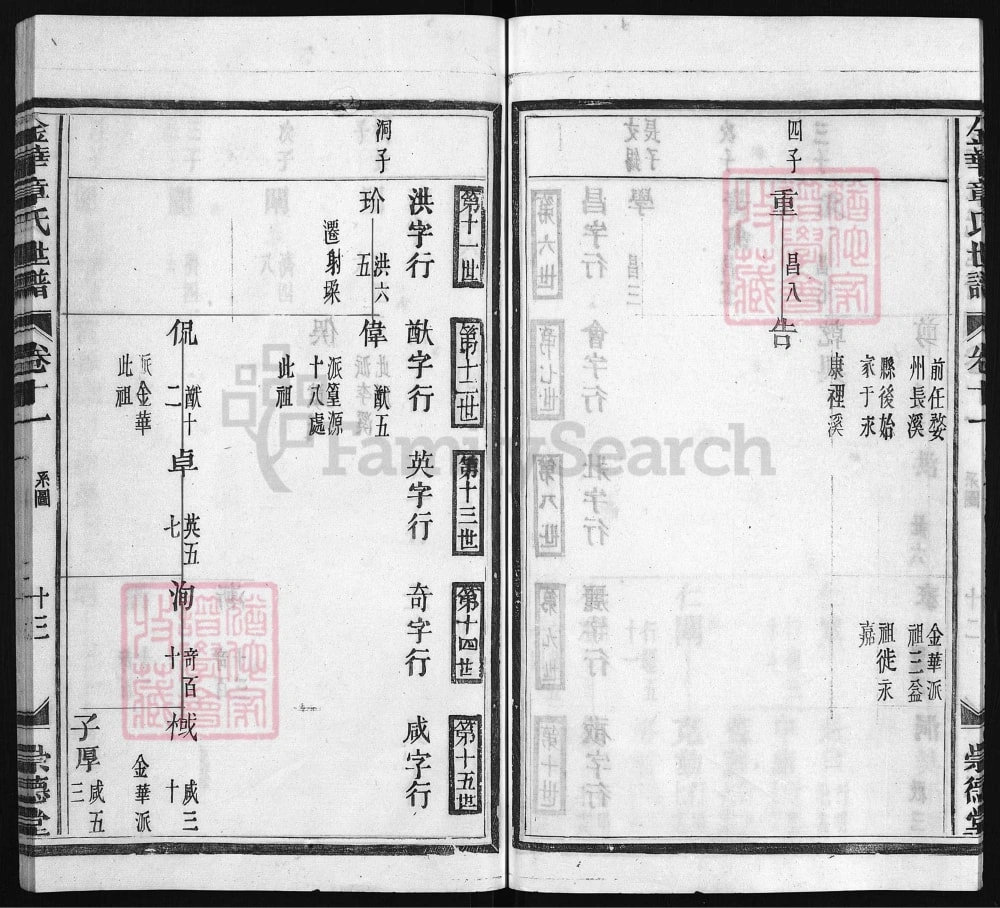 金華章氏世譜
卷十一
系圖
十二
崇德堂
前任婺
州長溪
縣後始
家于永
康裡溪
金華派
祖三益
祖徙永
嘉
四子
重
昌八
告
第十一世
第十二世
第十三世
第十四世
第十五世
洪字行
猷字行
英字行
奇字行
咸字行
洞子
玠
洪六
五
遷射垜
偉
猷五
派篁源
十八處
此祖
侃
猷十
二
派金華
此祖
卓
英五
七
洵
奇百
十
棫
咸三
十
金華派
子厚
咸五
三
金華章氏世譜
卷十一
系圖
十三
崇德堂
FamilySearch